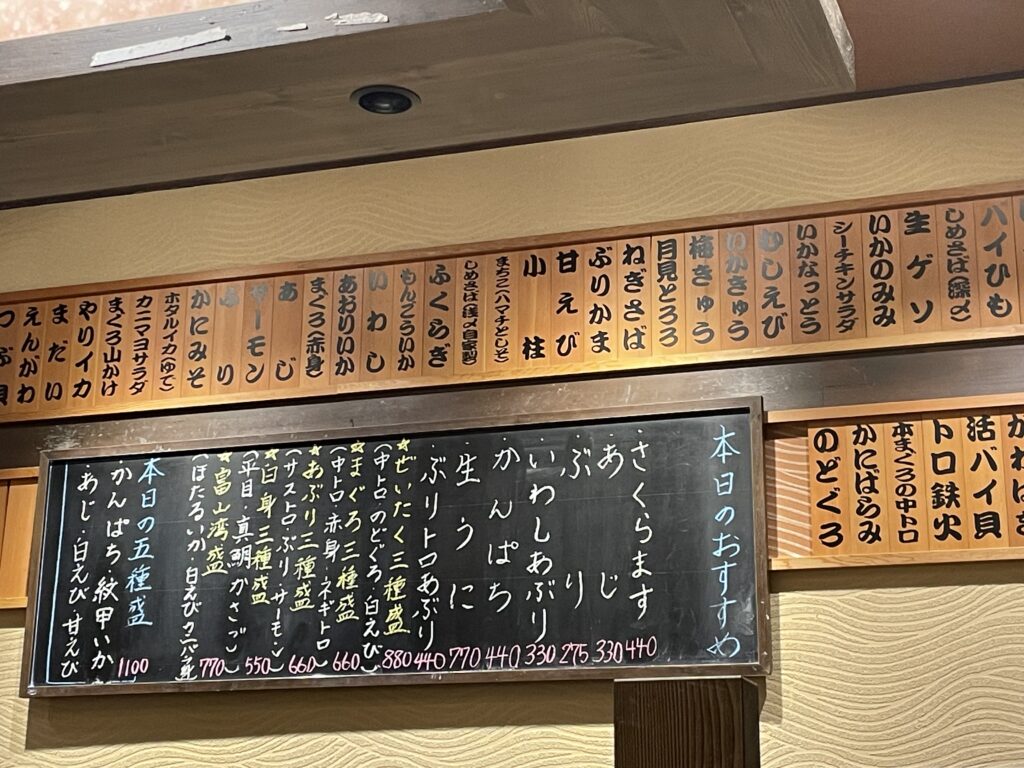 ハイひも
しめさば(深〆)
生ゲソ
いかのみみ
シーチキンサラダ
いかなっとう
むしえび
いかきゅう
梅きゅう
月見とろろ
ねぎさば
ぶりかま
甘えび
小柱
まちこ(ハマチとしそ)
しめさば(浅〆自家製)
ふくらぎ
もんごういか
いわし
あおりいか
まぐろ(赤身)
あじ
サーモン
ぶり
かにみそ
ホタルイカ(ゆで)
カニマヨサラダ
まぐろ山かけ
やりイカ
まだい
えんがわ
つぶ貝
活バイ貝
トロ鉄火
本まぐろの中トロ
かにばらみ
のどぐろ
本日のおすすめ
・さくらます 440
・あじ 330
・ぶり 275
・いわしあぶり 330
・かんぱち 440
・生うに 770
・ぶりトロあぶり 440
★ぜいたく三種盛 880
(中トロ・のどぐろ・白えび)
★まぐろ三種盛 660
(中トロ・赤身・ネギトロ)
★あぶり三種盛 660
(サストロ・ぶり・サーモン)
★白身三種盛 550
(平目・真鯛・かさご)
★富山湾盛 770
(ほたるいか・白えび・
本日の五種盛 1100
かんぱち・紋甲いか
・あじ・白えび・甘えび